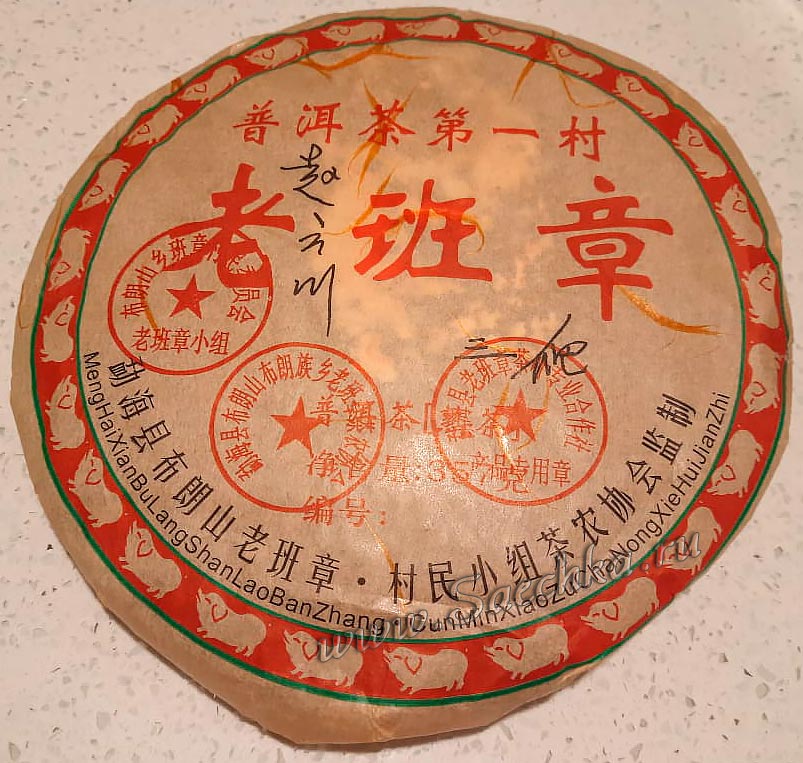 普洱茶第一村
老班章
赵
三爬
布朗山乡班章
老班章小组
勐海县布朗山布朗族乡老班
县老班章茶 业合作社
产品专用章
普洱茶
净含量:357克
编号:
勐海县布朗山老班章·村民小组茶农协会监制
MengHaiXianBuLangShanLaoBanZhang·CunMinXiaoZuChaNongXieHuiJianZhi
www.Saechka.ru